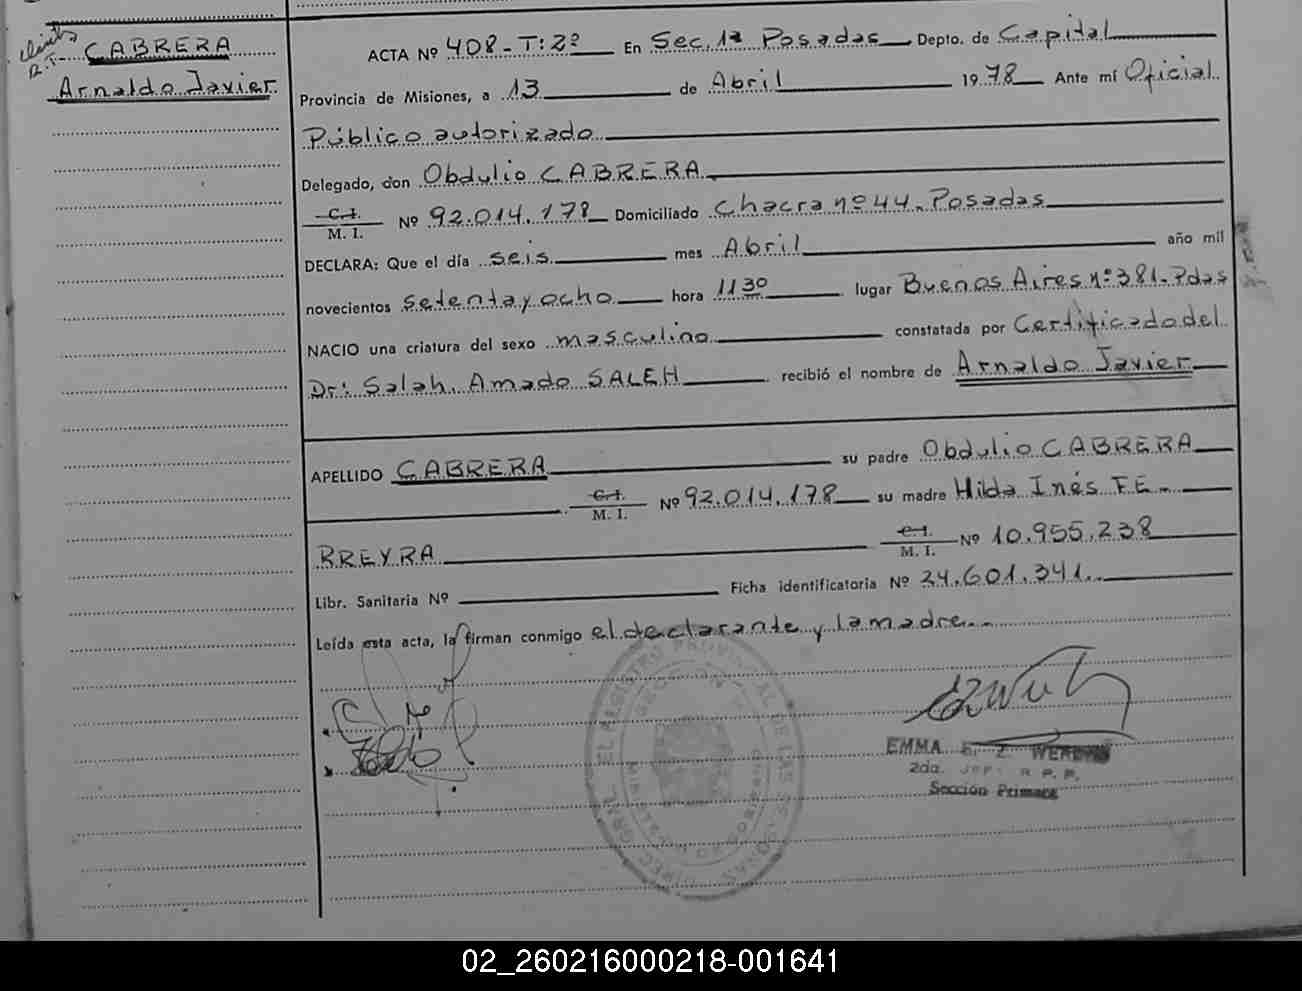 CABRERA
Arnaldo Javier
ACTA Nº 408-T:2º En Sec. 1ª Posadas Depto. de Capital
Provincia de Misiones, a 13 de Abril 1978 Ante mí Oficial
Público autorizado
Delegado, don Obdulio CABRERA
C.I. M. I. Nº 92.014.178 Domiciliado Chacra nº 44. Posadas
DECLARA: Que el día seis mes Abril año mil
novecientos setenta y ocho hora 11 30 lugar Buenos Aires nº 381. Pdas
NACIO una criatura del sexo masculino constatada por Certificado del
Dr: Salah. Amado SALEH recibió el nombre de Arnaldo Javier
APELLIDO CABRERA su padre Obdulio CABRERA
C.I. M. I. Nº 92.014.178 su madre Hilda Inés FE-
RREYRA C.I. M. I. Nº 10.955.238
Libr. Sanitaria Nº Ficha identificatoria Nº 24.601.341.
Leída esta acta, la firman conmigo el declarante y la madre.-
EMMA E. Z.
2da. R. P. P.
Sección Primera
02_260216000218-001641